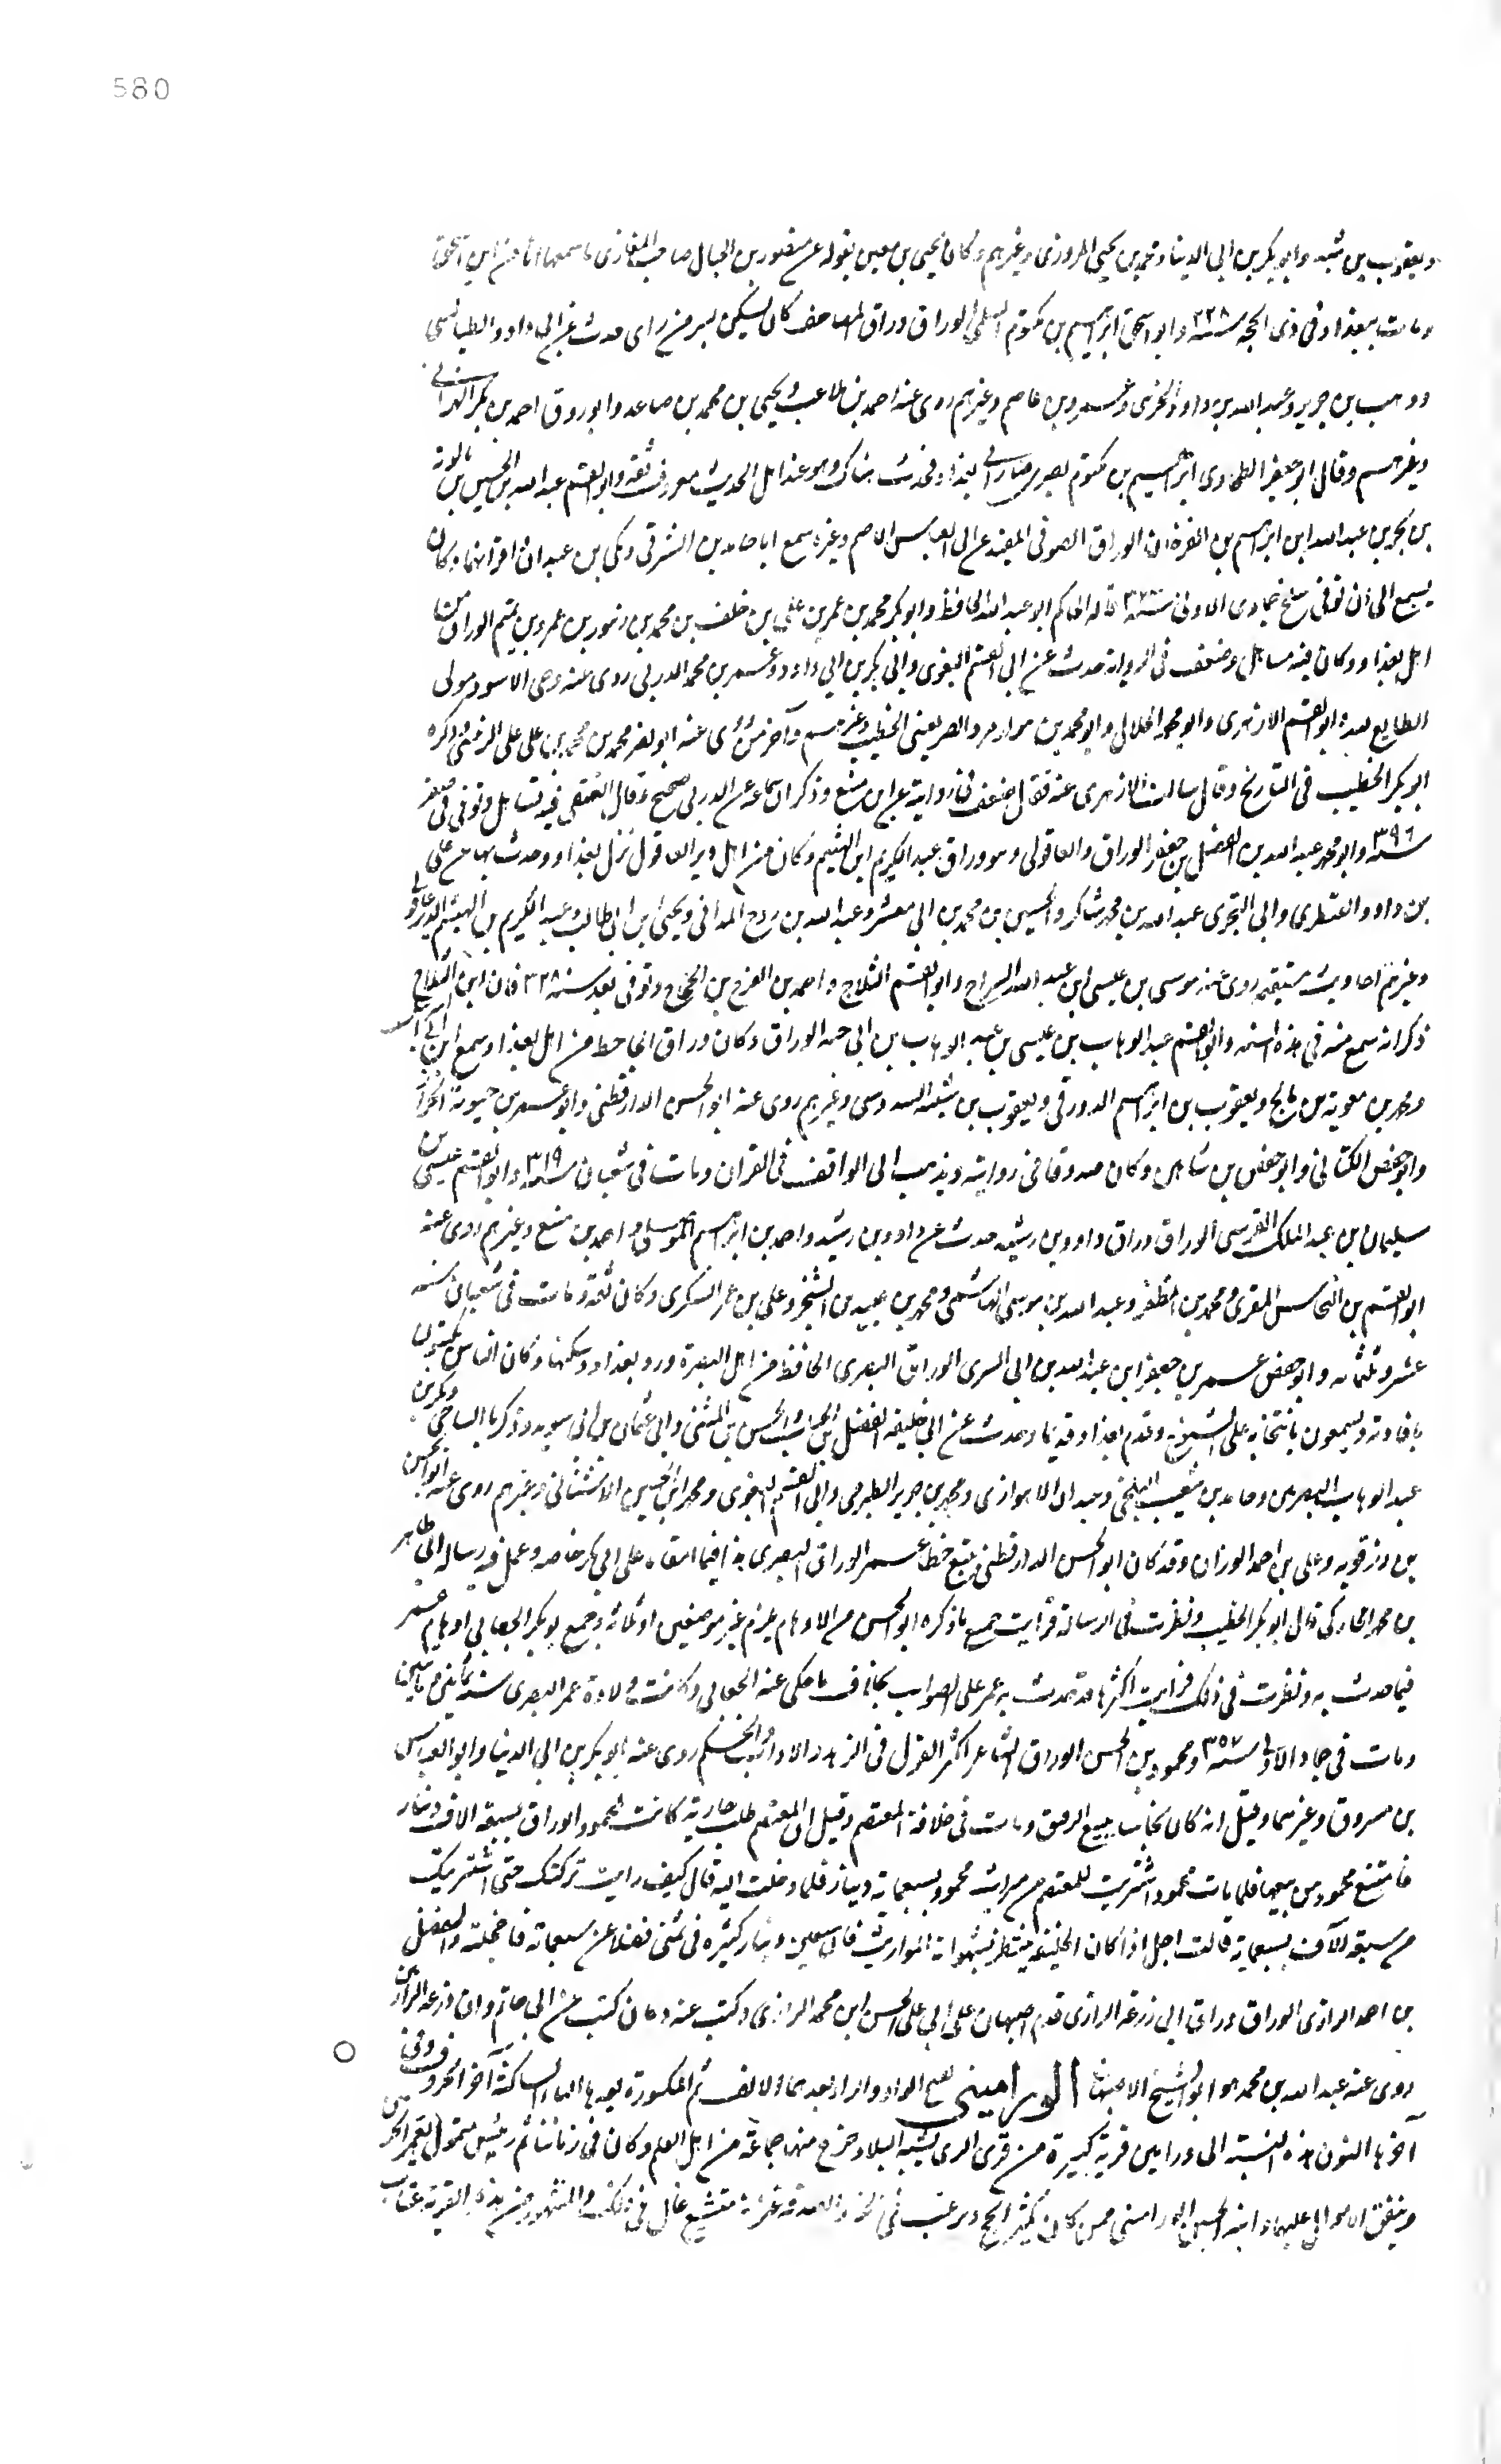 580
ويعقوب بن شيبه وابو بكر بن ابي الدنيا ومحمد بن يحيى المروزى وغيرهم وكان يحيى بن معين يقول عن منصور بن صاحب المغازى ما سمعها من ابن اسحق
ومات ببغداد فى ذى الحجه سنة ٢٢٨ وابو اسحق ابراهيم بن مكتوم السلمى الوراق وراق المصاحف كان يسكن سر من راى حدث عن ابى داود الطيالسى
ووهب بن جرير وعبد الله بن داود الخريبى وعمرو بن عاصم وغيرهم روى عنه احمد بن ملاعب ويحيى بن محمد بن صاعد وابو روق احمد بن بكر الهزانى
وغيرهم وقال ابو جعفر الطحاوى ابراهيم بن مكتوم بصرى صار الى بغداد فحدث هناك وهو عند اهل الحديث معروف ثقه وابو القسم عبد الله بن الحسين بن بالويه
بن بحر بن عبد الله ابن ابراهيم بن الفرخان الوراق الصوفى المفيد عن ابى العباس الاصم وغيره سمع ابا حامد بن الشرقى ومكى بن عبدان واقرانهما وكان
يسمع الى ان توفى سلخ جمادى الاولى قاله الحاكم ابو عبد الله الحافظ وابو بكر محمد بن عمر بن على بن خلف بن محمد بن زنبور بن عمرو بن تميم الوراق من
اهل بغداد وكان فيه تساهل وضعف فى الرواية حدث عن ابى القسم البغوى وابى بكر بن ابى داود وعمر بن محمد الدربى روى عنه وصى الاسود مولى
الطايع لله وابو القسم الازهرى وابو محمد الخلال وابو محمد بن الصريفينى الخطيب وغيرهم وآخر من روى عنه ابو نصر محمد بن محمد بن على الزينبى وذكره
ابو بكر الخطيب فى التاريخ وقال سالت الازهرى عنه فقال ضعف فى روايته عن ابن منيع وذكر ان سماعه من الدربى صحيح وقال العتيقى فيه تساهل وتوفى فى صفر
سنة ٣٩٦ وابو محمد عبد الله بن الفضل بن جعفر الوراق والعاقولى وهو وراق عبد الكريم ابن الهيثم وكان من اهل دير العاقول نزل بغداد وحدث بها عن على
بن داود القنطرى وابى البخترى عبد الله بن محمد شاكر والحسين بن محمد بن ابى معشر وعبد الله بن روح المدائنى ويحيى بن ابى طالب وعبد الكريم بن الهيثم الديرعاقولى
وغيرهم احاديث مستقيمه روى عنه موسى بن عيسى ابن عبد الله السراج وابو القسم الثلاج واحمد بن الفرج بن الحجاج وتوفى بعد سنة ٣٢٨ فان ابن الثلاج
ذكر انه سمع منه فى هذه السنه وابو القسم عبد الوهاب بن عيسى بن عبد الوهاب بن ابى حيه الوراق وكان وراق الجاحظ من اهل بغداد وسمع اسحق بن ابى اسرائيل
ومحمد بن معوية بن مالج ويعقوب بن ابراهيم الدورقى ويعقوب بن شيبه السدوسى وغيرهم روى عنه ابو الحسن الدارقطنى وابو عمر بن حيوية الخزاز
وابو حفص الكتانى وابو حفص بن شاهين وكان صدوقا فى روايته ويذهب الى الواقف فى القران ومات فى شعبان سنة ٣١٩ وابو القسم عيسى بن
سليمان بن عبد الملك القرشى الوراق وراق داود بن رشيد حدث عن داود بن رشيد واحمد بن ابراهيم الموصلى واحمد بن منيع وغيرهم روى عنه
ابو القسم بن النخاس المقرى ومحمد بن المظفر وعبد الله بن موسى الهاشمى ومحمد بن عبيد بن الشخير وعلى بن عمر السكرى وكان ثقة ومات فى شعبان سنه
عشر وثلثمائه وابو حفص عمر بن جعفر ابن عبد الله بن ابى السرى الوراق البصرى الحافظ من اهل البصرة ورد بغداد وسكنها وكان الناس يكتبون
بافادته ويسمعون بانتخابه على الشيوخ وقدم بغداد قديما وحدث عن ابى خليفه الفضل بن الحباب والحسن بن المثنى وابى عثمان بن ابى سويد وزكريا الساجى وبكر بن
عبد الوهاب البصرى وحامد بن شعيب البلخى وعبدان الاهوازى ومحمد بن جرير الطبرى وابى القسم البغوى ومحمد ابن الحسين الاشنانى وغيرهم روى عنه ابو الحسن
بن رزقويه وعلى بن احمد الوزان وقد كان ابو الحسن الدارقطنى يتبع خطا عمر الوراق البصرى فيما انتقاه على ابى بكر خاصه وعمل فيه رساله الى طاهر
بن محمد الخاركى قال ابو بكر الخطيب ونظرت فى الرساله فرايت جميع ما ذكره ابو الحسن من الاوهام يلزم غير موضعين او ثلاثة وجمع ابو بكر الجعابى اوهام عمر
فيما حدث به ونظرت فى ذلك فرايت اكثرها قد حدث به عمر على الصواب بخلاف ما حكى عنه الجعابى وكانت ولادة عمر البصرى سنه ثمانين ومايتين
ومات فى جمادى الاولى سنة ٣٥٧ ومحمود بن الحسن الوراق الشاعر اكثر القول فى الزهد والادب والحكم روى عنه ابو بكر بن ابى الدنيا وابو العباس
بن مسروق وغيرهما وقيل انه كان نخاسا يبيع الرقيق ومات فى خلافة المعتصم وقيل ان المعتصم طلب جارية كانت لمحمود الوراق بسبعة الاف دينار
فامتنع محمود من بيعها فلما مات محمود اشتريت للمعتصم من ميراث محمود بسبعماية دينار فلما دخلت اليه قال كيف رايت تركتك حتى اشتريتك
من سبعة الآف بسبعماية قالت اجل اذا كان الخليفة ينتظر بشهواته المواريث فان سبعين دينار كثيره فى ثمنى فضلا عن سبعماية فاخجلته والفضل
بن احمد الرازى الوراق وراق ابى زرعة الرازى قدم اصبهان على ابى على الحسن ابن محمد الرازى وكتب عنه وكان كتب عن ابى حاتم وابى زرعه الرازيين
روى عنه عبد الله بن محمد هو ابو الشيخ الاصبهانى الورامينى بفتح الواو والراء بعدهما الالف ثم الميم المكسورة بعدها الياء الساكنة آخر الحروف وفى
آخرها النون هذه النسبة الى ورامين قرية كبيرة من قرى الرى يشبه البلاد خرج منها جماعة من اهل العلم وكان فى زماننا ثم رئيس متمول يعمر الحرمين
وينفق الاموال عليهما وابنه الحسين الورامينى ممن كان كثير الحج ويرغب فى الخير والصدقة غير انه متشيع غال فى ذلك والمشهور من هذه القرية عتاب